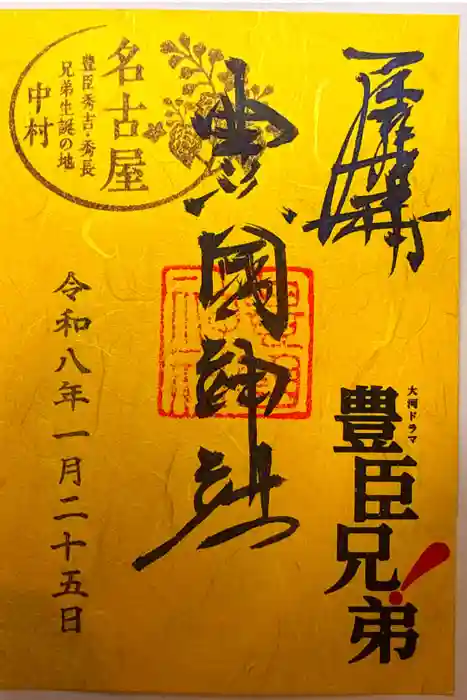 奉拝
大河ドラマ
豊臣兄弟!
豊國神社
名古屋
豊臣秀吉・秀長
兄弟生誕の地
中村
令和八年一月二十五日